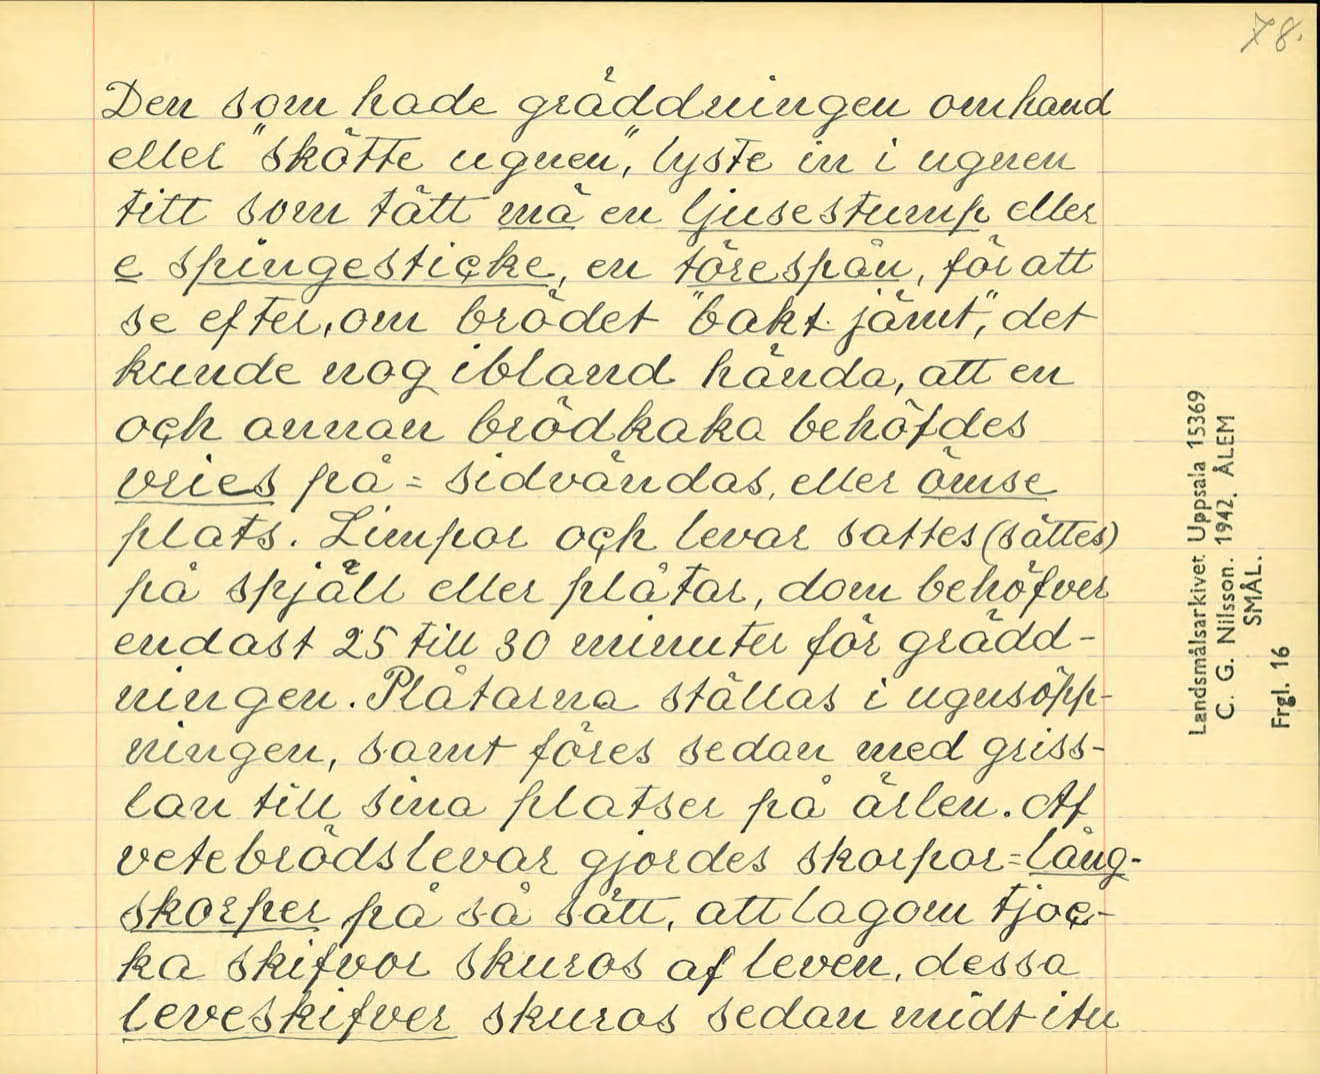 78.
Den som hade gräddningen omhand
eller "skötte ugnen", lyste in i ugnen
titt som tätt mä en ljusestump eller
e spingesticke, en törespån, för att
se efter, om brödet "bakt jämt", det
kunde nog ibland hända, att en
och annan brödkaka behöfdes
vries på = sidvändas, eller ömse
plats. Limpor och levar sattes (sättes)
på spjäll eller plåtar, dom behöfver
endast 25 till 30 minuter för grädd-
ningen. Plåtarna ställas i ugnsöpp-
ningen, samt föres sedan med griss-
lan till sina platser på ärlen. Af
vetebrödslevar gjordes skorpor = lång-
skorper på så sätt, att lagom tjoc-
ka skifvor skuros af leven, dessa
leveskifver skuros sedan midt itu
Landsmålsarkivet Uppsala 15369
C. G. Nilsson. 1942. ÅLEM
SMÅL.
Frgl. 16